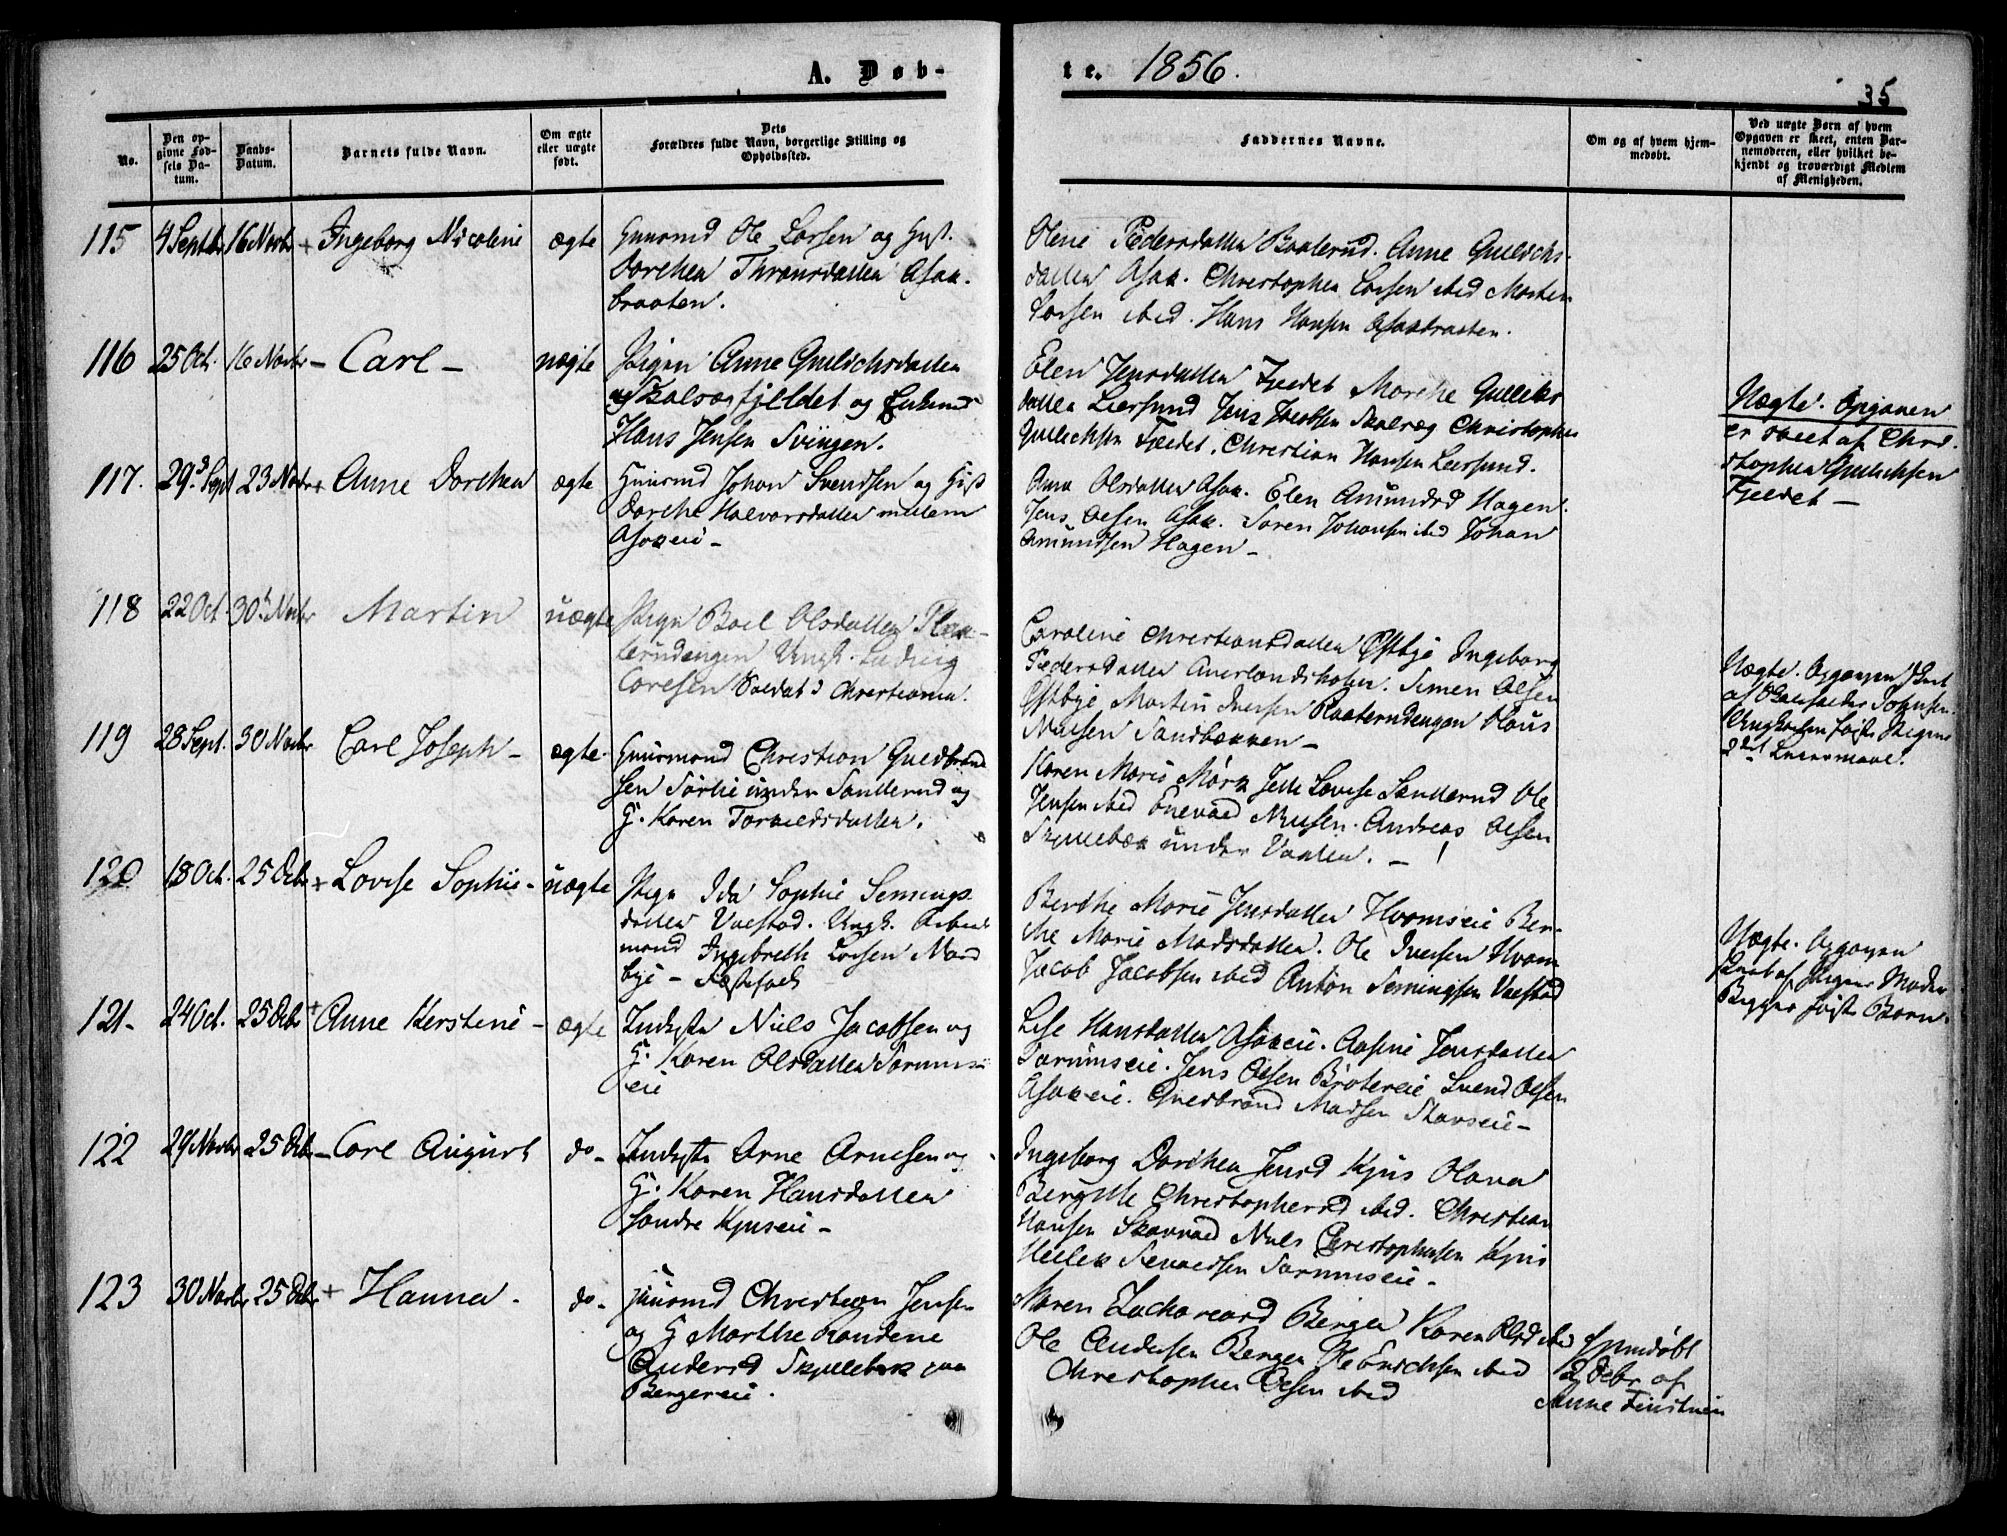 A. Døb-
te. 1856.
35
No.
Den op-
givne Fød-
sels Da-
tum.
Daabs-
Datum.
Barnets fulde Navn.
Om ægte
eller uægte
født.
Dets
Forældres fulde Navn, borgerlige Stilling og
Opholdssted.
Faddernes Navne.
Om og af hvem hjem-
medøbt.
Ved uægte Børn af hvem
Opgaven er skeet, enten Bar-
nemoderen, eller hvilket be-
kjendt og troværdigt Medlem
af Menigheden.
115 4 Septbr 16 Novbr + Ingeborg Nicoline ægte
Huusmd Ole Larsen og Hust.
Dorthea Thronsdatter Asak-
braaten.
Olene Pedersdatter Baaterud. Anne Gulichs-
datter Asak. Christopher Larsen ibid Morten
Larsen ibid. Hans Hansen Asakbraaten.
116 25 Oct. 16 Novbr - Carl - uægte
Pigen Anne Gulichsdatter
Skalsægfjeldet og Enkemd
Hans Jensen Svingen.
Elen Jensdatter Fjeldet Marthe Gulliks
datter Leersund Jens Jacobsen Skalsæg Christopher
Gulichsen Fjeldet. Christian Hansen Leersund.
Uægte. Opgaven
er skeet af Chri-
stopher Gulichsen
Fjeldet -
117. 29d Sept 23 Novbr + Anne Dorthea ægte
Huusmd Johan Svendsen og Hust
Dorthe Halvorsdatter mellem
Asakeie -
Anne Olsdatter Asak. Elen Amundsd Hagen.
Jens Olsen Asak. Soren Johansen ibid Johan
Amundsen Hagen -
118 22 Oct. 30 Novbr Martin uægte
Pige Boel Olsdatter Plaa-
terudengen Ungk. Ludvig
Soldat i Christiania.
Caroline Christiansdatter Østbye Ingeborg
Pedersdatter Simen Olsen
Østbye Martin Iversen Plaaterudengen Olaus
Nilsen Sandbækken -
Uægte. Opgaven skeet
119 28 Sept. 30 Novbr Carl Joseph - ægte.
Huusmand Christian Guldbrand
sen Sørlie under Sanderud og
H. Karen Torkildsdatter.
Karen Marie Mørk Lovise Sanderud Ole
Jensen ibid Enevald Nilsen. Andreas Olsen
Skjellebæk under Vaaler. -
120 18 Oct. 25 Debr + Lovise Sophie - uægte
Pige Ida Sophie Semings-
datter Valstad. Ungk. Arbeids
mand Ingebreth Larsen Nord
bye -
Berthe Marie Jensdatter Hvamseie Ber-
the Marie Madsdatter. Ole Iversen Hvam
Jacob Jacobsen ibid Anton Semingsen Valstad
Uægte. Opgaven
skeet af Pigens Moder
Begges første Barn.
121- 24 Oct. 25 Debr + Anne Kerstine - ægte
Inderste Niels Jacobsen og
H. Karen Olsdatter Sørums-
eie
Lise Hansdatter Asakeie. Aasine Jensdatter
Sørumseie. Jens Olsen Brotereie Svend Olsen
Asakeie. Guldbrand Madsen Stavseie -
122 29 Novbr 25 Debr - Carl August do -
Inderste Arne Arnesen og
H. Karen Hansdatter
søndre Kjuseie -
Ingeborg Dorthea Jensd Kjus Olava
Bergitte Christophersd ibid. Christian
Hansen Skovvold Niels Christophersen Kjus
Helleck Sørumseie -
123 30 Novbr 25 Debr + Hanna. do -
Huusmd Christian Jensen
og H Marthe Randine
Andersd Skjellebæk paa
Bergereie.
Maren Zachariasd Berger Karen Olsd ibid
Ole Andersen Berger Ole Erichsen ibid
Christopher Olsen ibid
Hjemdøbt
2 Debr af
Anne